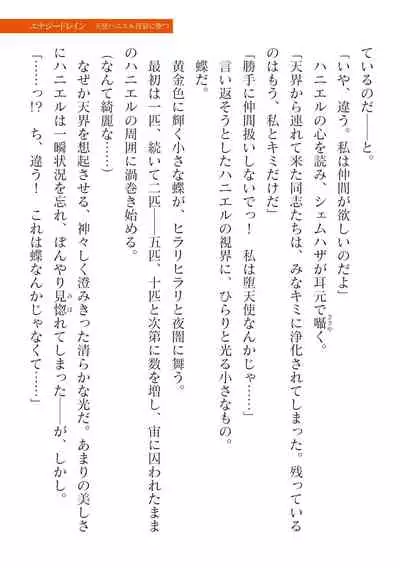 エナジードレイン　天使ハニエル背影に墜つ
ているのだ――と。
「いや、違う。私は仲間が欲しいのだよ」
ハニエルの心を読み、シェムハザが耳元で囁く。
「天界から連れて来た同志たちは、みなキミに浄化されてしまった。残っている
のはもう、私とキミだけだ」
「勝手に仲間扱いしないでっ！　私は堕天使なんかじゃ……」
言い返そうとしたハニエルの視界に、ひらりと光る小さなもの。
蝶だ。
黄金色に輝く小さな蝶が、ヒラリヒラリと夜闇に舞う。
最初は一匹、続いて二匹――五匹、十匹と次第に数を増し、宙に囚われたまま
のハニエルの周囲に渦巻き始める。
（なんて綺麗な……）
なぜか天界を想起させる、神々しく澄みきった清らかな光だ。あまりの美しさ
にハニエルは一瞬状況を忘れ、ぼんやり見惚れてしまった――が、しかし。
「……っ!?　ち、違う！　これは蝶なんかじゃなくて……」